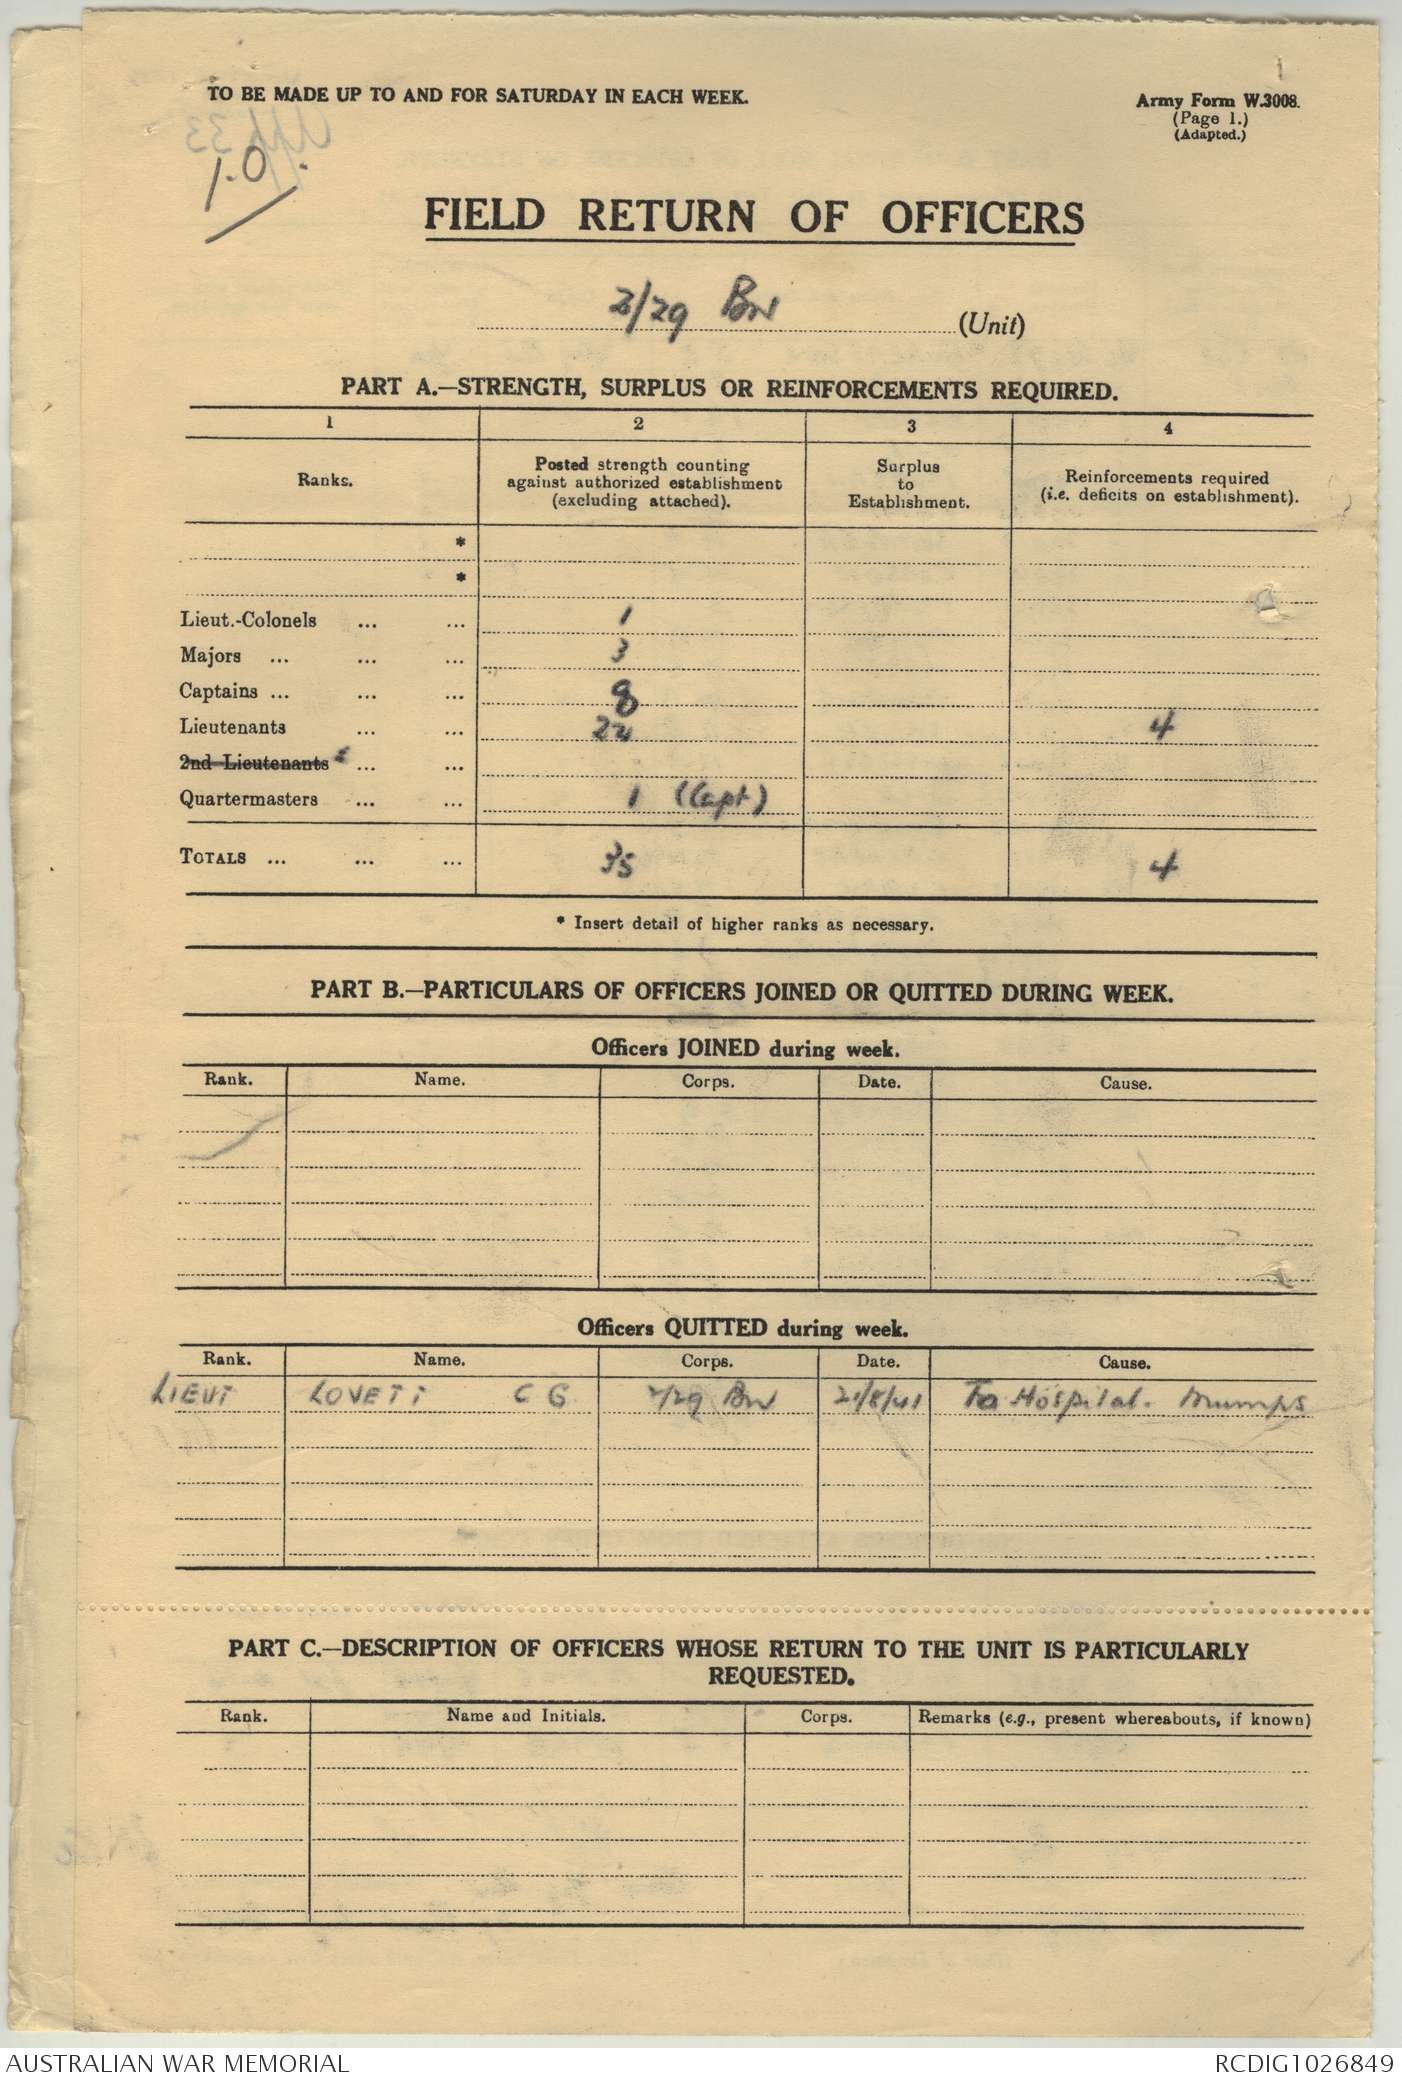 TO BE MADE UP TO AND FOR SATURDAY IN EACH WEEK.
Army Form W.3008.
(Page 1.)
(Adapted.)
1.O.
FIELD RETURN OF OFFICERS
2/29 Bn (Unit)
PART A.—STRENGTH, SURPLUS OR REINFORCEMENTS REQUIRED.
1 2 3 4
Ranks. Posted strength counting against authorized establishment (excluding attached). Surplus to Establishment. Reinforcements required (i.e. deficits on establishment).
*
*
Lieut.-Colonels ... ... 1
Majors ... ... ... 3
Captains ... ... ... 8
Lieutenants ... ... 22 4
2nd Lieutenants ... ...
Quartermasters ... ... 1 (Capt)
TOTALS ... ... ... 35 4
* Insert detail of higher ranks as necessary.
PART B.—PARTICULARS OF OFFICERS JOINED OR QUITTED DURING WEEK.
Officers JOINED during week.
Rank. Name. Corps. Date. Cause.
Officers QUITTED during week.
Rank. Name. Corps. Date. Cause.
LIEUT LOVETT C G 2/29 Bn 21/8/41 To Hospital. Mumps
PART C.—DESCRIPTION OF OFFICERS WHOSE RETURN TO THE UNIT IS PARTICULARLY
REQUESTED.
Rank. Name and Initials. Corps. Remarks (e.g., present whereabouts, if known)
AUSTRALIAN WAR MEMORIAL RCDIG1026849